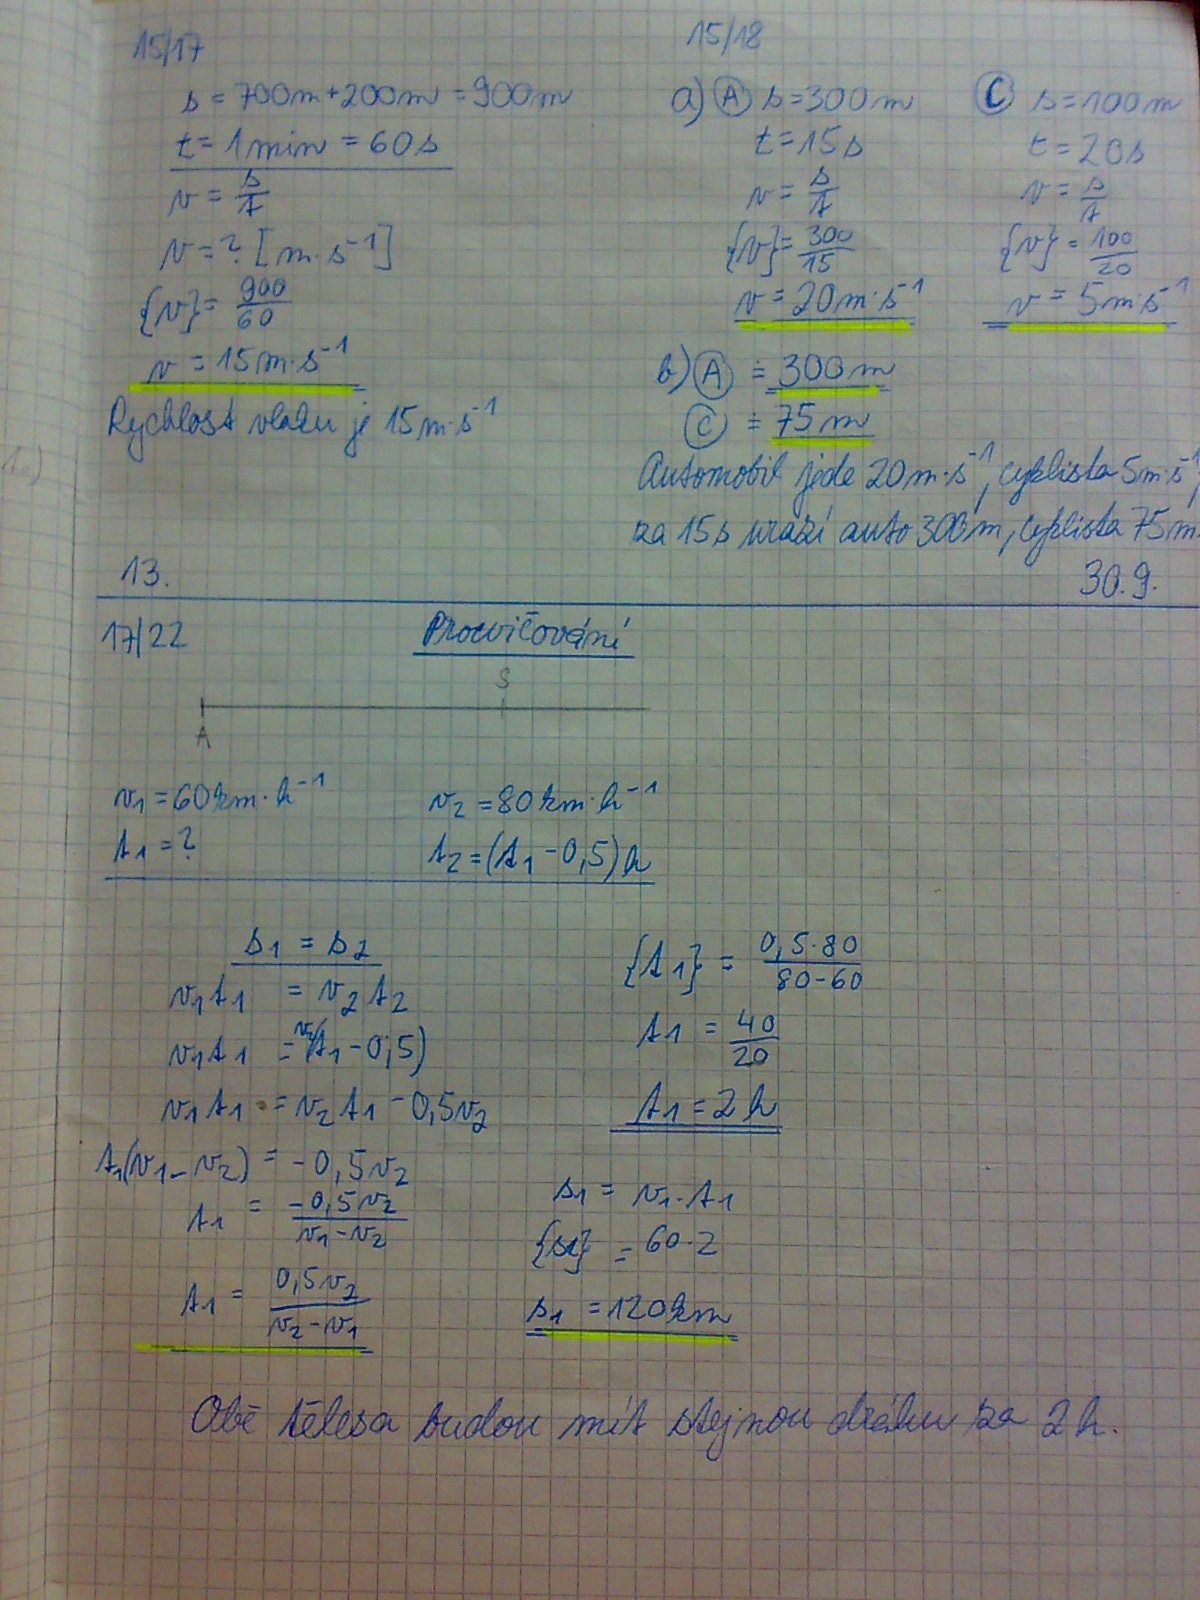 15/17
s = 700m + 200m = 900m
t = 1 min = 60s
v = s/t
v = ? [m·s⁻¹]
{v} = 900/60
v = 15m·s⁻¹
Rychlost vlaku je 15m·s⁻¹
15/18
a) A s = 300m
t = 15s
v = s/t
{v} = 300/15
v = 20m·s⁻¹
C s = 100m
t = 20s
v = s/t
{v} = 100/20
v = 5m·s⁻¹
b) A ≐ 300m
C ≐ 75m
Automobil jede 20m·s⁻¹, cyklista 5m·s⁻¹,
za 15s urazí auto 300m, cyklista 75m.
13.
30.9.
17/22
Procvičování
S
A
v₁ = 60km·h⁻¹
t₁ = ?
v₂ = 80km·h⁻¹
t₂ = (t₁ - 0,5)h
s₁ = s₂
v₁t₁ = v₂t₂
v₁t₁ = v₂(t₁ - 0,5)
v₁t₁ = v₂t₁ - 0,5v₂
t₁(v₁ - v₂) = -0,5v₂
t₁ = -0,5v₂/v₁-v₂
t₁ = 0,5v₂/v₂-v₁
{t₁} = 0,5·80/80-60
t₁ = 40/20
t₁ = 2h
s₁ = v₁·t₁
{s₁} = 60·2
s₁ = 120km
Obě tělesa budou mít stejnou dráhu za 2h.